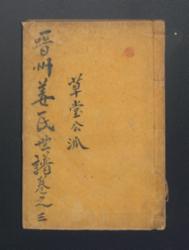 晋州姜氏世譜卷之三
草堂公派